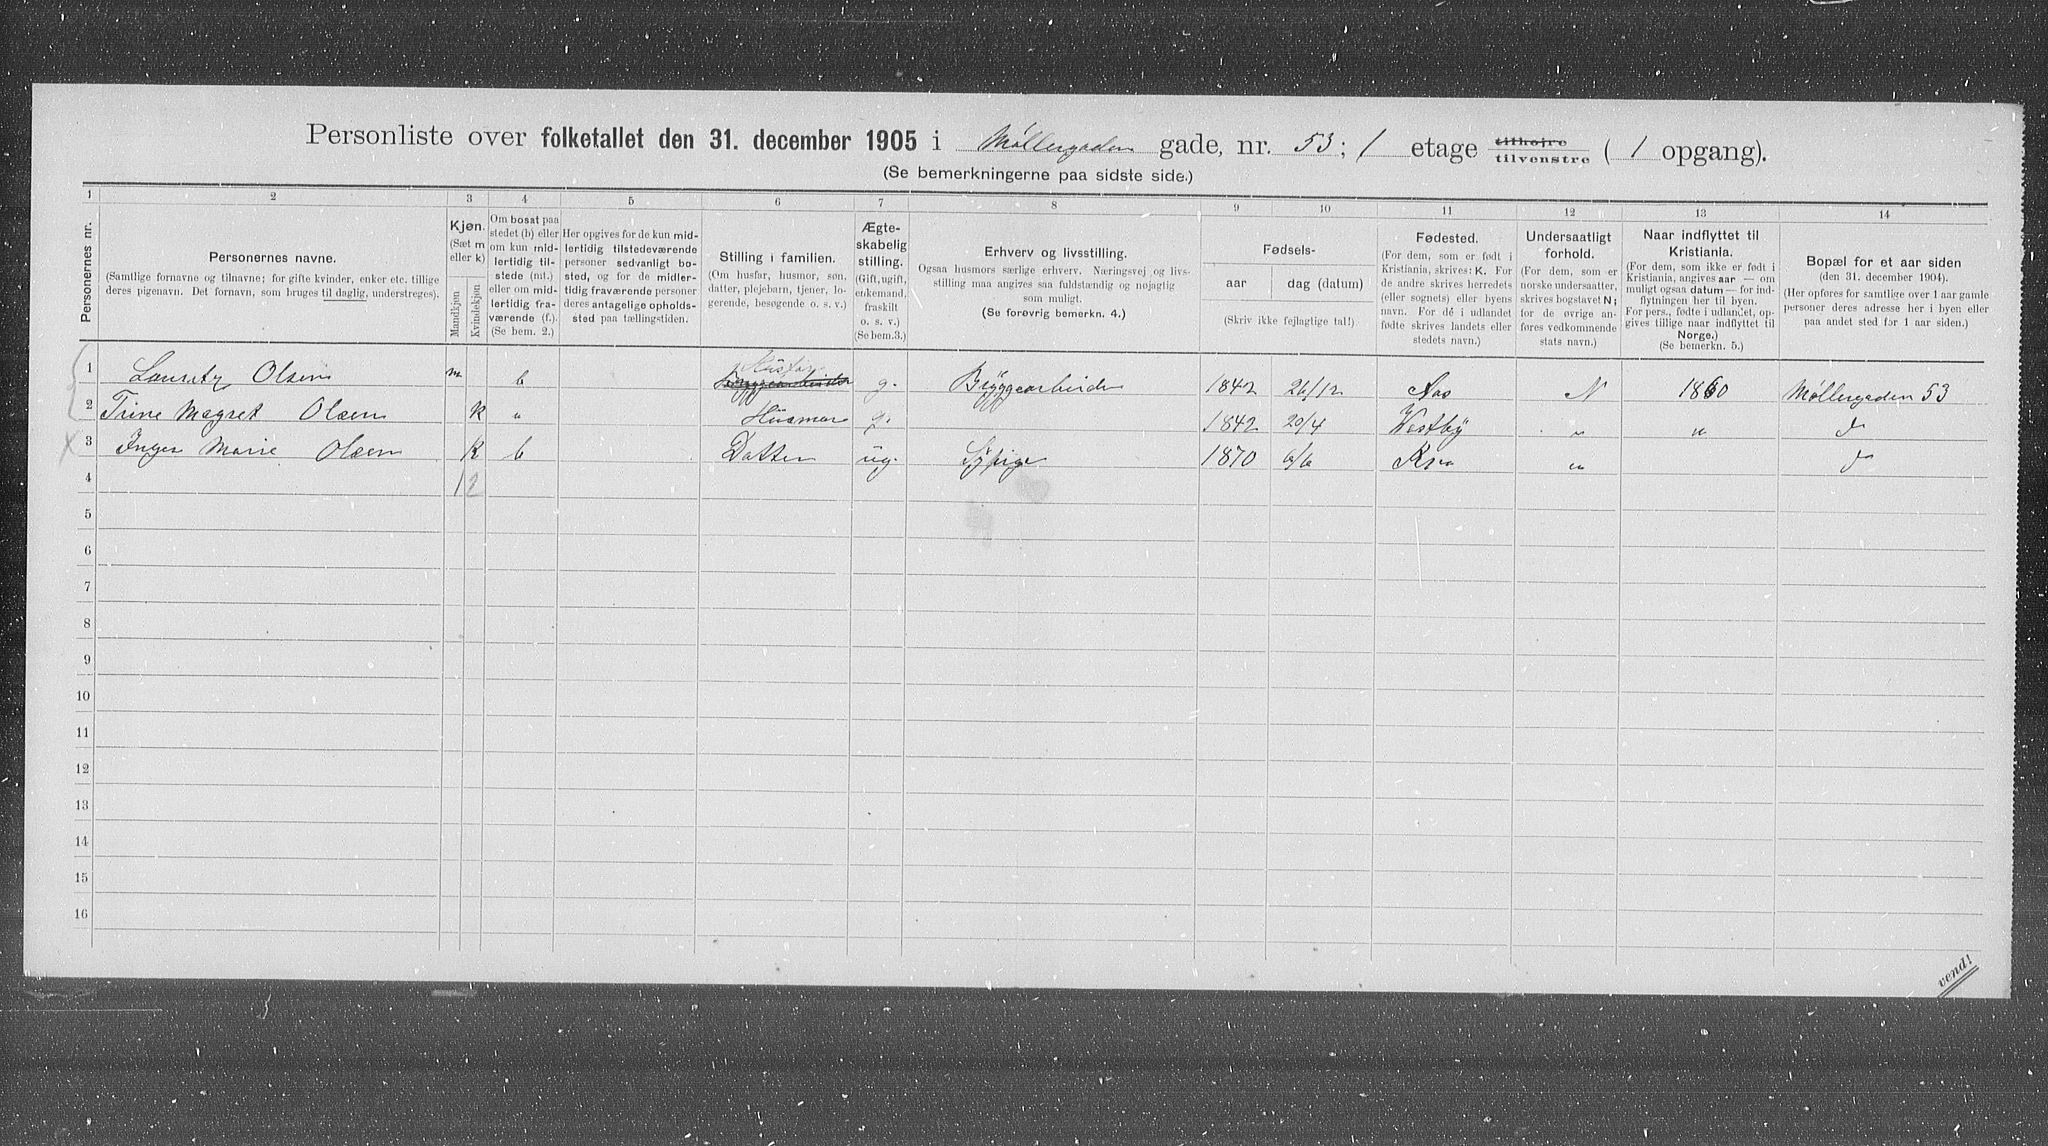 Personliste over folketallet den 31. december 1905 i Møllergaden gade, nr. 53; 1 etage tilhøire tilvenstre ( 1 opgang).
(Se bemerkningerne paa sidste side.)
1 2 3 4 5 6 7 8 9 10 11 12 13 14
Personernes nr.
Personernes navne.
(Samtlige fornavne og tilnavne; for gifte kvinder, enker etc. tillige
deres pigenavn. Det fornavn, som bruges til daglig, understreges).
Kjøn.
(Sæt m
eller k)
Mandkjøn
Kvindekjøn
Om bosat paa
stedet (b) eller
om kun mid-
lertidig til-
stede (mt.)
eller om mid-
lertidig fra-
værende (f.).
(Se bem. 2.)
Her opgives for de kun mid-
lertidig tilstedeværende
personer sedvanligt bo-
sted, og for de midler-
tidig fraværende personer
deres antagelige opholds-
sted paa tællingstiden.
Stilling i familien.
(Om husfar, husmor, søn,
datter, plejebarn, tjener, lo-
gerende, besøgende o. s. v.)
Ægte-
skabelig
stilling.
(Gift, ugift,
enkemand,
fraskilt
o. s. v.)
(Se bem.3.)
Erhverv og livsstilling.
Ogsaa husmors særlige erhverv. Næringsvej og livs-
stilling maa angives saa fuldstændig og nøjagtig
som muligt.
(Se forøvrig bemerkn. 4.)
Fødsels-
aar
dag (datum)
(Skriv ikke fejlagtige tal!).
Fødested.
(For dem, som er født i
Kristiania, skrives: K. For
de andre skrives herredets
(eller sognets) eller byens
navn. For de i udlandet
fødte skrives landets eller
stedets navn.)
Undersaatligt
forhold.
(For dem, som er
norske undersaatter,
skrives bogstavet N;
for de øvrige an-
føres vedkommende
stats navn.)
Naar indflyttet til
Kristiania.
(For dem, som ikke er født i
Kristiania, angives aar — om
muligt ogsaa datum — for ind-
flytningen her til byen.
For pers., fødte i udlandet, op-
gives tillige naar indflyttet til
Norge.)
(Se bemerkn. 5.)
Bopæl for et aar siden
(den 31. december 1904).
(Her opføres for samtlige over 1 aar gamle
personer deres adresse her i byen eller
paa andet sted for 1 aar siden.)
1 Lauritz Olsen m b Husfar g. Bryggearbeider 1842 26/12 Aas N 1860 Møllergaden 53
2 Trine Magret Olsen k " Husmor g. 1842 20/4 Westby " " do
3 Inger Marie Olsen k b Datter ug. Sypige 1870 6/6 Kra " do
4 1 2
5
6
7
8
9
10
11
12
13
14
15
16
vend!